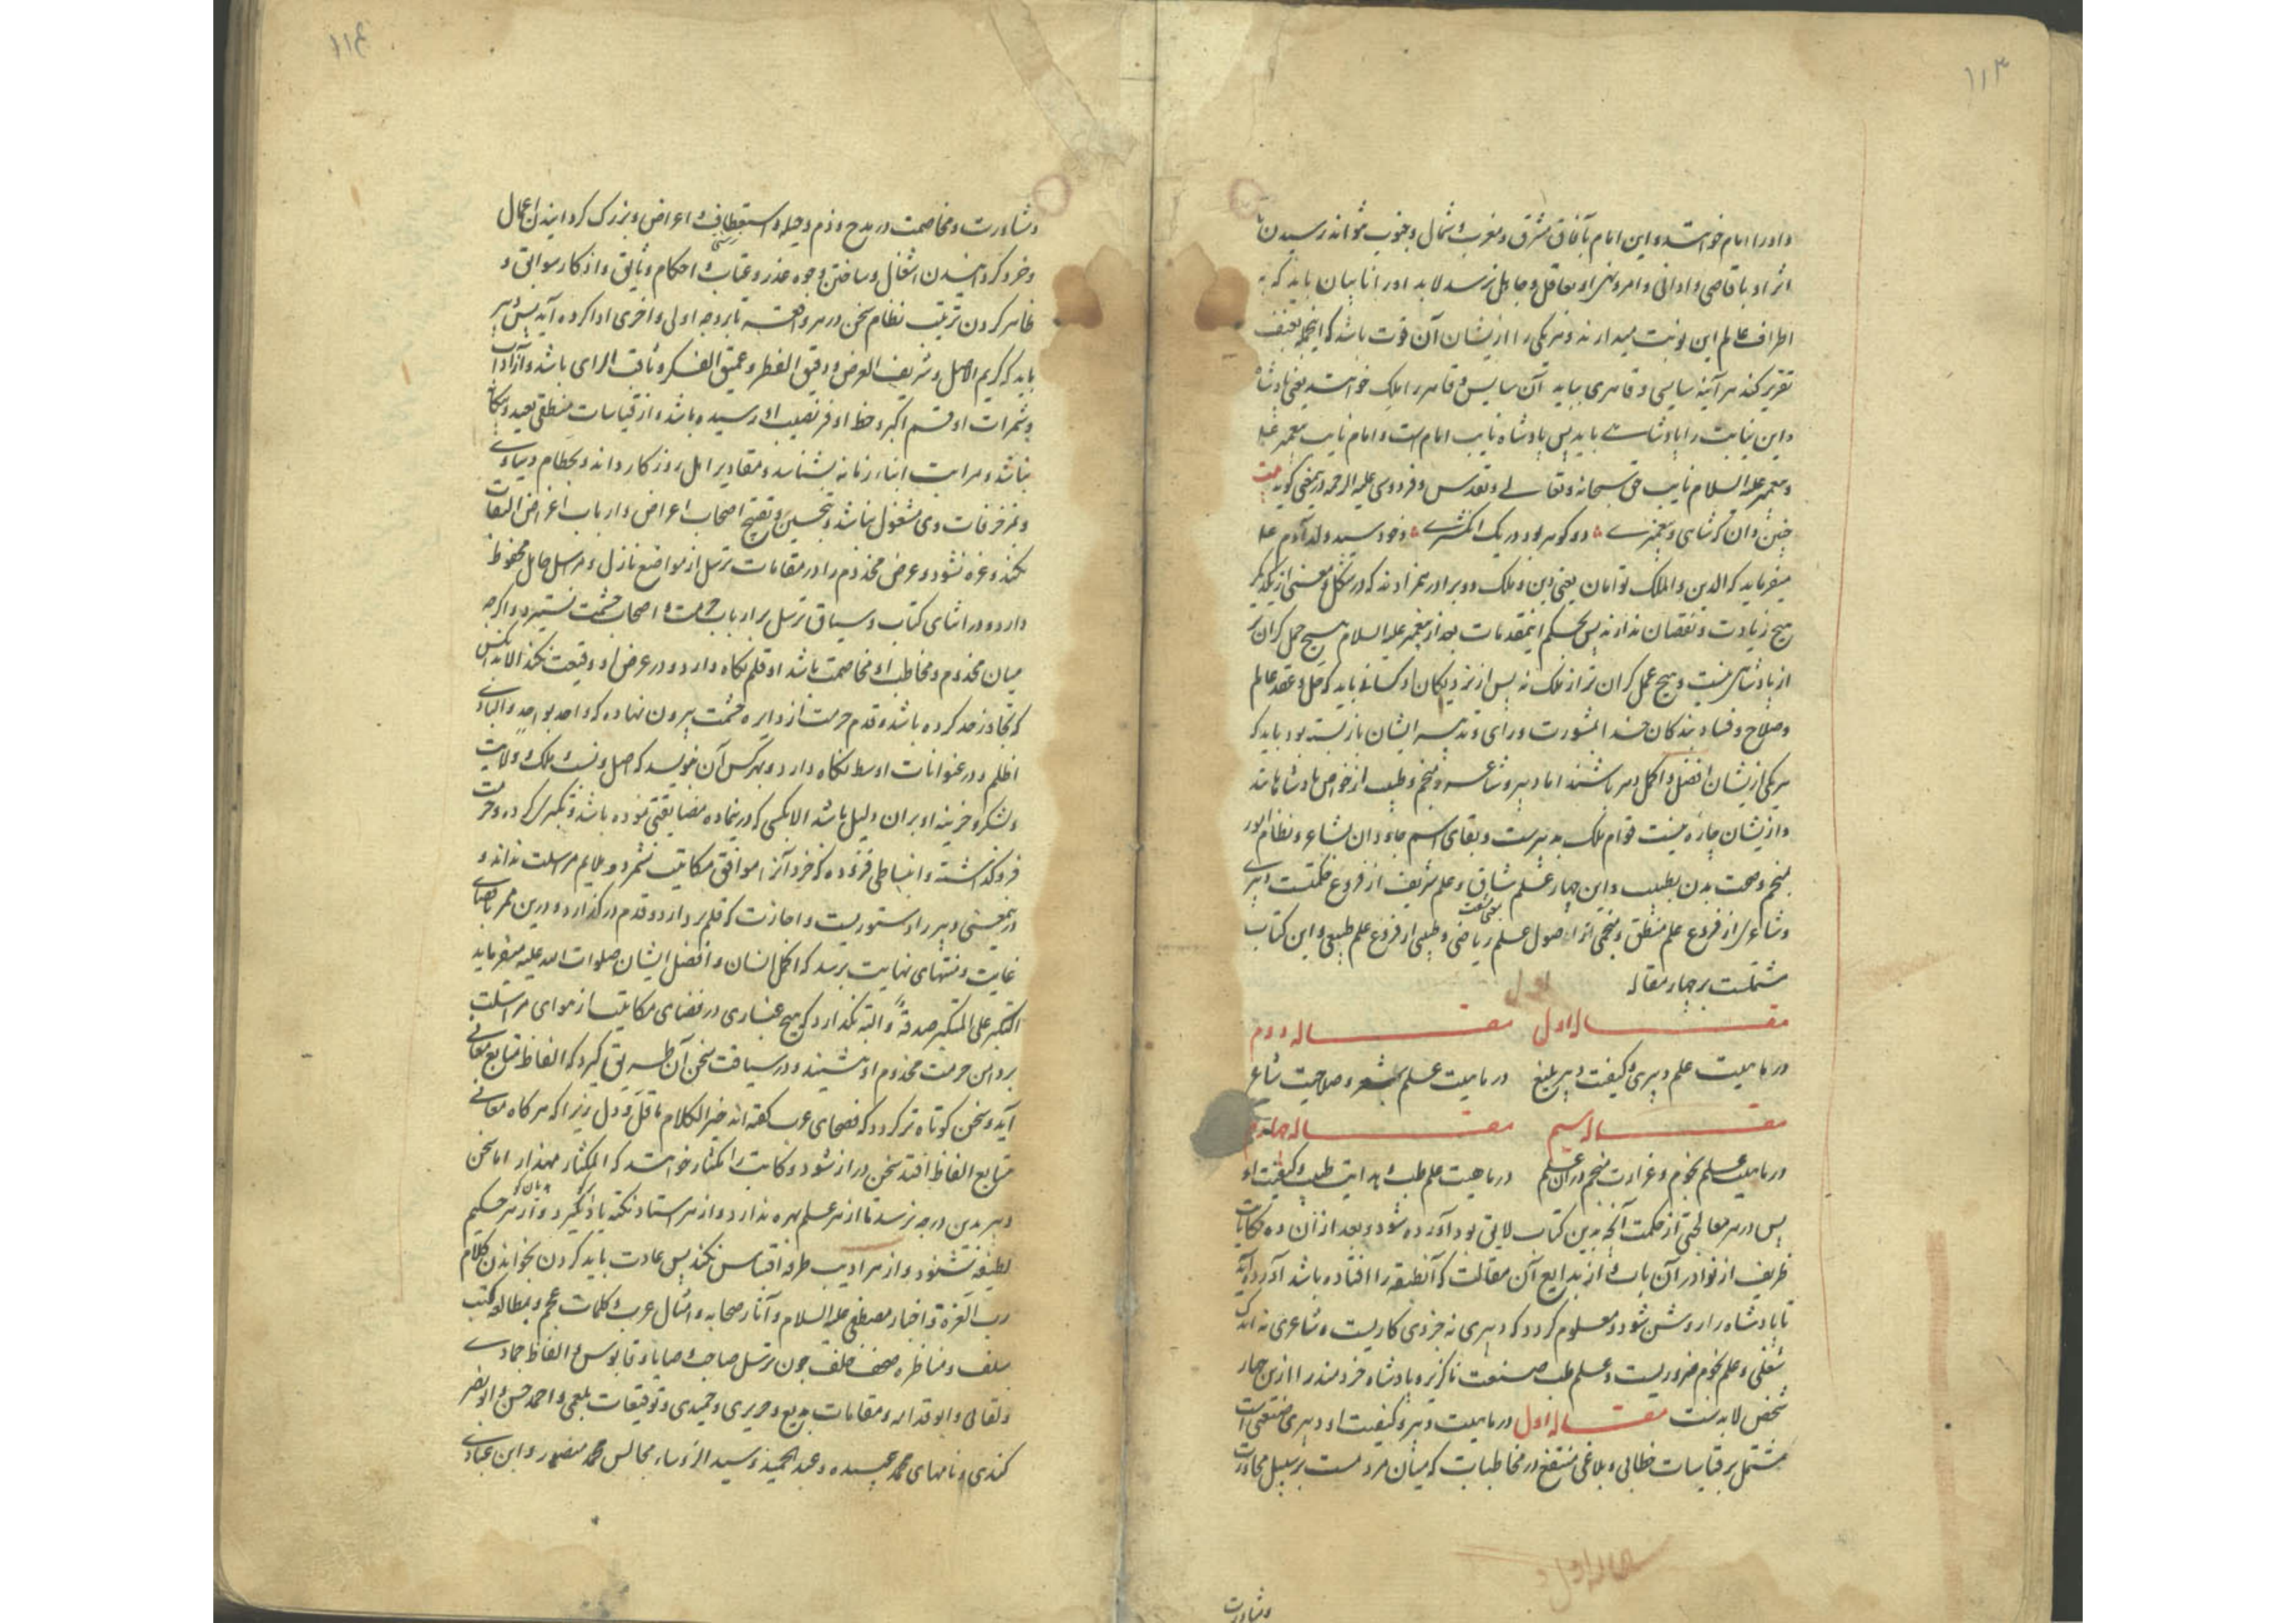 ۱۱۳
و او را امام خوانند و این امام بآفاق مشرق و مغرب و شمال و جنوب نتواند رسیدن تا
اثر او باقاصی و ادانی و امر و نهی او بعاقل و جاهل نرسد لابد او را نایبان باید که به
اطراف عالم این نوبت میدارند و هر یکی را از ایشان آن قوت نباشد که اینجمله بعنف
تقریر کند هر آینه سایسی و قاهری بباید آن سایس و قاهر را ملک خوانند یعنی پادشاه
و این نیابت را پادشاهی باید پس پادشاه نایب امامست و امام نایب پیغمبر علیه
و پیغمبر علیه السلام نایب حق سبحانه و تعالی و تقدس و فردوسی علیه الرحمه درینمعنی گوید بیت
چنین دان که شاهی و پیغمبری دو گوهر بود در یک انگشتری و خود سید ولد آدم علیه
میفرماید که الدین و الملک توامان یعنی دین و ملک دو برادر همزادند که در شکل و معنی از یکدیگر
هیچ زیادت و نقصان ندارند پس بحکم اینمقدمات بعد از پیغمبر علیه السلام هیچ حمل گران تر
از پادشاهی نیست و هیچ عمل گران تر از ملک نه پس از نزدیکان او کسانی باید که حل و عقد عالم
و صلاح و فساد بندگان خدا بمشورت و رای و تدبیر ایشان بازبسته بود باید که
هر یکی از یشان افضل و اکمل دهر باشند اما دبیر و شاعر و منجم و طبیب از خواص پادشاهانند
و از یشان چاره نیست قوام ملک بدبیرست و بقای اسم جاودان بشاعر و نظام امور
بمنجم و صحت بدن بطبیب و این چهار عمل شاق و علم شریف از فروع حکمتست دبیری
و شاعری از فروع علم منطق و منجمی از اصول علم ریاضی و طبی از فروع علم طبیعی و این کتاب
مشتملست بر چهار مقاله
مقاله اول مقاله دوم
در ماهیت علم دبیری و کیفیت دبیر بلیغ در ماهیت علم شعر و صلاحیت شاعر
مقاله سیم مقاله چهارم
در ماهیت علم نجوم و غزارت منجم در آن علم در ماهیت علم طب و هدایت طبیب و کیفیت او
پس در هر مقالتی از حکمت آنچه بدین کتاب لایق بود آورده شود و بعد از آن ده حکایات
ظریف از نوادر آن باب و از بدایع آن مقالت که آنطبقه را افتاده باشد آورده آید
تا پادشاه را روشن شود و معلوم گردد که دبیری نه خردی کاریست و شاعری نه اندک
شغلی و علم نجوم ضروریست و علم طب صنعت ناگزیر و پادشاه خردمند را ازین چهار
شخص لابدست مقاله اول در ماهیت دبیر و کیفیت او دبیری صنعتی است
مشتمل بر قیاسات خطابی و بلاغی منتفع در مخاطبات که میان مردمست بر سبیل محاورت
و مشاورت
۱۱۴
و مشاورت و مخاصمت در مدح و ذم و حیله و استعطاف و اعراض و بزرگ گردانیدن اعمال
و خرد گردانیدن اشغال و ساختن وجوه عذر و عتاب و احکام وثایق و اذکار سوابق و
ظاهر کردن ترتیب نظام سخن در هر واقعه تا بر وجه اولی و احری ادا کرده آید پس دبیر
باید که کریم الاصل و شریف العرض و دقیق النظر و عمیق الفکر و ثاقب الرای باشد و از ادب
و ثمرات او قسم اکبر و حظ اوفر نصیب او رسیده باشد و از قیاسات منطقی بعید و بیگانه
نباشد و مراتب ابناء زمانه بشناسد و مقادیر اهل روزگار داند و بحطام دنیاوی
و مزخرفات وی مشغول نباشد و بتحسین و تقبیح اصحاب اعراض و ارباب اغراض التفات
نکند و غره نشود و عرض مخدوم را در مقامات ترسل از مواضع نازل و مراسل حامل محفوظ
دارد و در اثنای کتاب و سیاق ترسل بر ارباب حرمت و اصحاب حشمت نستیزد و اگرچه
میان مخدوم و مخاطب او مخاصمت باشد او قلم نگاه دارد و در عرض او وقیعت نکند الا بدانکس
که تجاوز حد کرده باشد و قدم حرمت از دایره حشمت بیرون نهاده که واحد بواحد و البادی
اظلم و در عنوانات اوسط نگاه دارد و بهر کس آن نویسد که اصل و نسب و ملک و ولایت
و لشکر و خزینه او بران دلیل باشد الا بکسی که در ینماده مضایقتی نموده باشد و تکبری کرده و خرده
فروگذاشته و انبساطی فزوده که خرد آنرا موافق مکاتیب نشمرد و ملایم مراسلت نداند و
در ینمعنی دبیر را دستوریست و اجازت که قلم بردارد و قدم درگذارد و درین ممر باقصای
غایت و منتهای نهایت برسد که اکمل انسان و افضل ایشان صلوات الله علیه میفرماید
التکبر علی المتکبر صدقة و البته نگذارد که هیچ غباری در فضای مکاتبت از هوای مراسلت
بر دامن حرمت مخدوم او نشیند و در سیاقت سخن آن طریق گیرد که الفاظ متابع معانی
آید و سخن کوتاه تر گردد که فصحای عرب گفته اند خیر الکلام ما قل و دل زیرا که هر گاه معانی
متابع الفاظ افتد سخن دراز شود و کاتب را مکثار خوانند که المکثار مهذار اما سخن
دبیر بدین درجه نرسد تا از هر علم بهره ندارد و از هر استاد نکته یاد نگیرد و از هر حکیم
لطیفه نشنود و از هر ادیب طرفه اقتباس نکند پس عادت باید کردن بخواندن کلام
رب العزه و اخبار مصطفی علیه السلام و آثار صحابه و امثال عرب و کلمات عجم و مطالعه کتب
سلف و مناظره صحف خلف چون ترسل صاحب و صابی و قابوس و الفاظ حمادی
و لقانی و ابو قدامه و مقامات بدیع و حریری و حمیدی و توقیعات بلعمی و احمد حسن و ابو نصر
کندری و نامهای محمد عبده و عبد الحمید و سید الرؤساء و مجالس محمد منصور و ابن عبادی